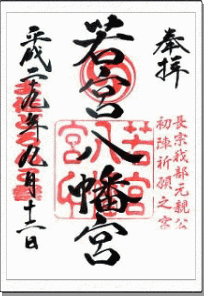 奉拝
長宗我部元親公
初陣祈願之宮
若宮八幡宮
若宮八
平成二九年九月十二日